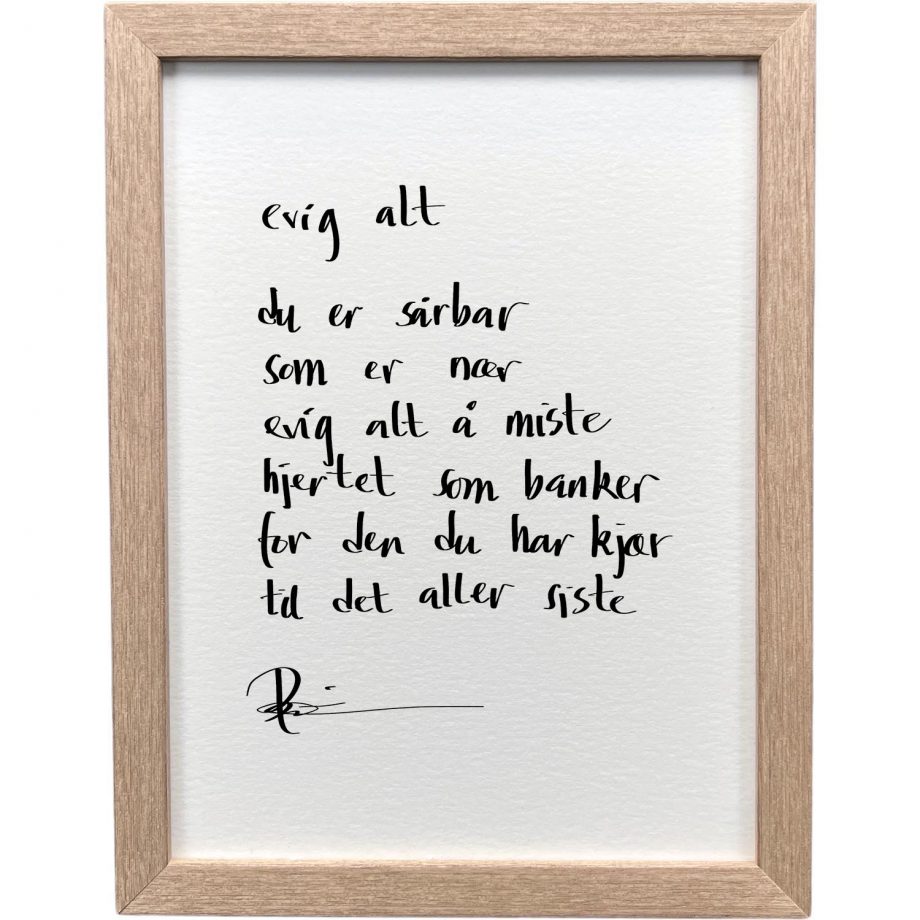 evig alt
du er sårbar
som er nær
evig alt å miste
hjertet som banker
for den du har kjær
til det aller siste